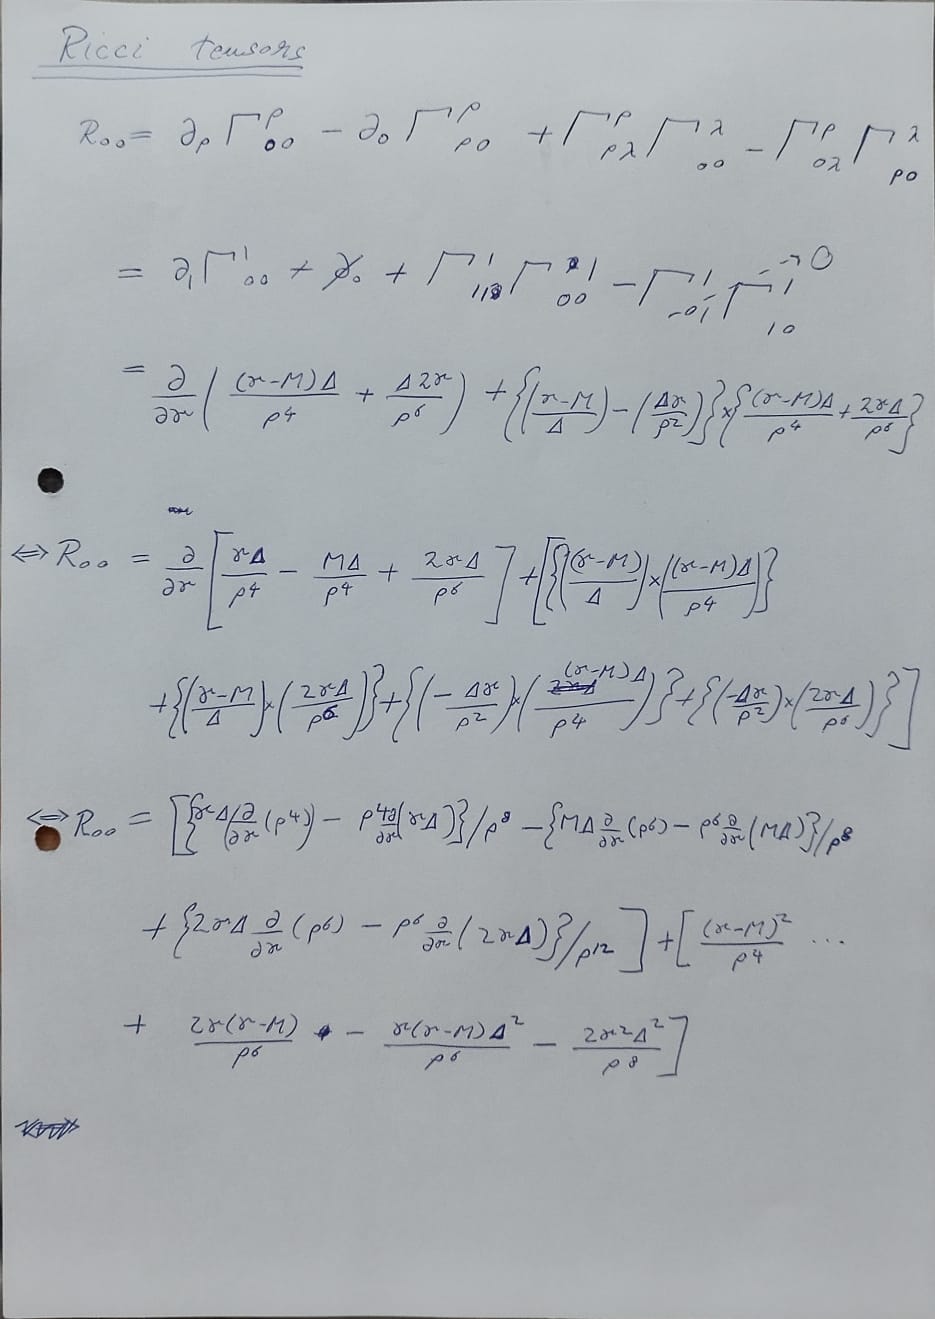 Ricci tensors
R₀₀ = ∂ρ Γ^ρ₀₀ − ∂₀ Γ^ρ_ρ0 + Γ^ρ_ρλ Γ^λ₀₀ − Γ^ρ_0λ Γ^λ_ρ0
= ∂₁ Γ¹₀₀ + ∂̸₀ + Γ¹₁₁ Γ¹₀₀ − Γ¹₀₁ Γ¹₁₀ → 0
= ∂/∂r ( (r−M)Δ/ρ⁴ + Δ2r/ρ⁶ ) + {(r−M/Δ) − (Δr/ρ²)} × {(r−M)Δ/ρ⁴ + 2rΔ/ρ⁶}
⇔ R₀₀ = ∂/∂r [ rΔ/ρ⁴ − MΔ/ρ⁴ + 2rΔ/ρ⁶ ] + [{((r−M)/Δ) × ((r−M)Δ/ρ⁴)}
+ {(r−M/Δ) × (2rΔ/ρ⁶)} + {(− Δr/ρ²) × ((r−M)Δ/ρ⁴)} + {(−Δr/ρ²) × (2rΔ/ρ⁶)}]
⇔ R₀₀ = [{rΔ(∂/∂r (ρ⁴) − ρ⁴ ∂/∂r (rΔ)}/ρ⁸ − {MΔ ∂/∂r (ρ⁶) − ρ⁶ ∂/∂r (MΔ)}/ρ⁸
+ {2rΔ ∂/∂r (ρ⁶) − ρ⁶ ∂/∂r (2rΔ)}/ρ¹² ] + [ (r−M)²/ρ⁴ ...
+ 2r(r−M)/ρ⁶ − r(r−M)Δ²/ρ⁶ − 2r²Δ²/ρ⁸ ]